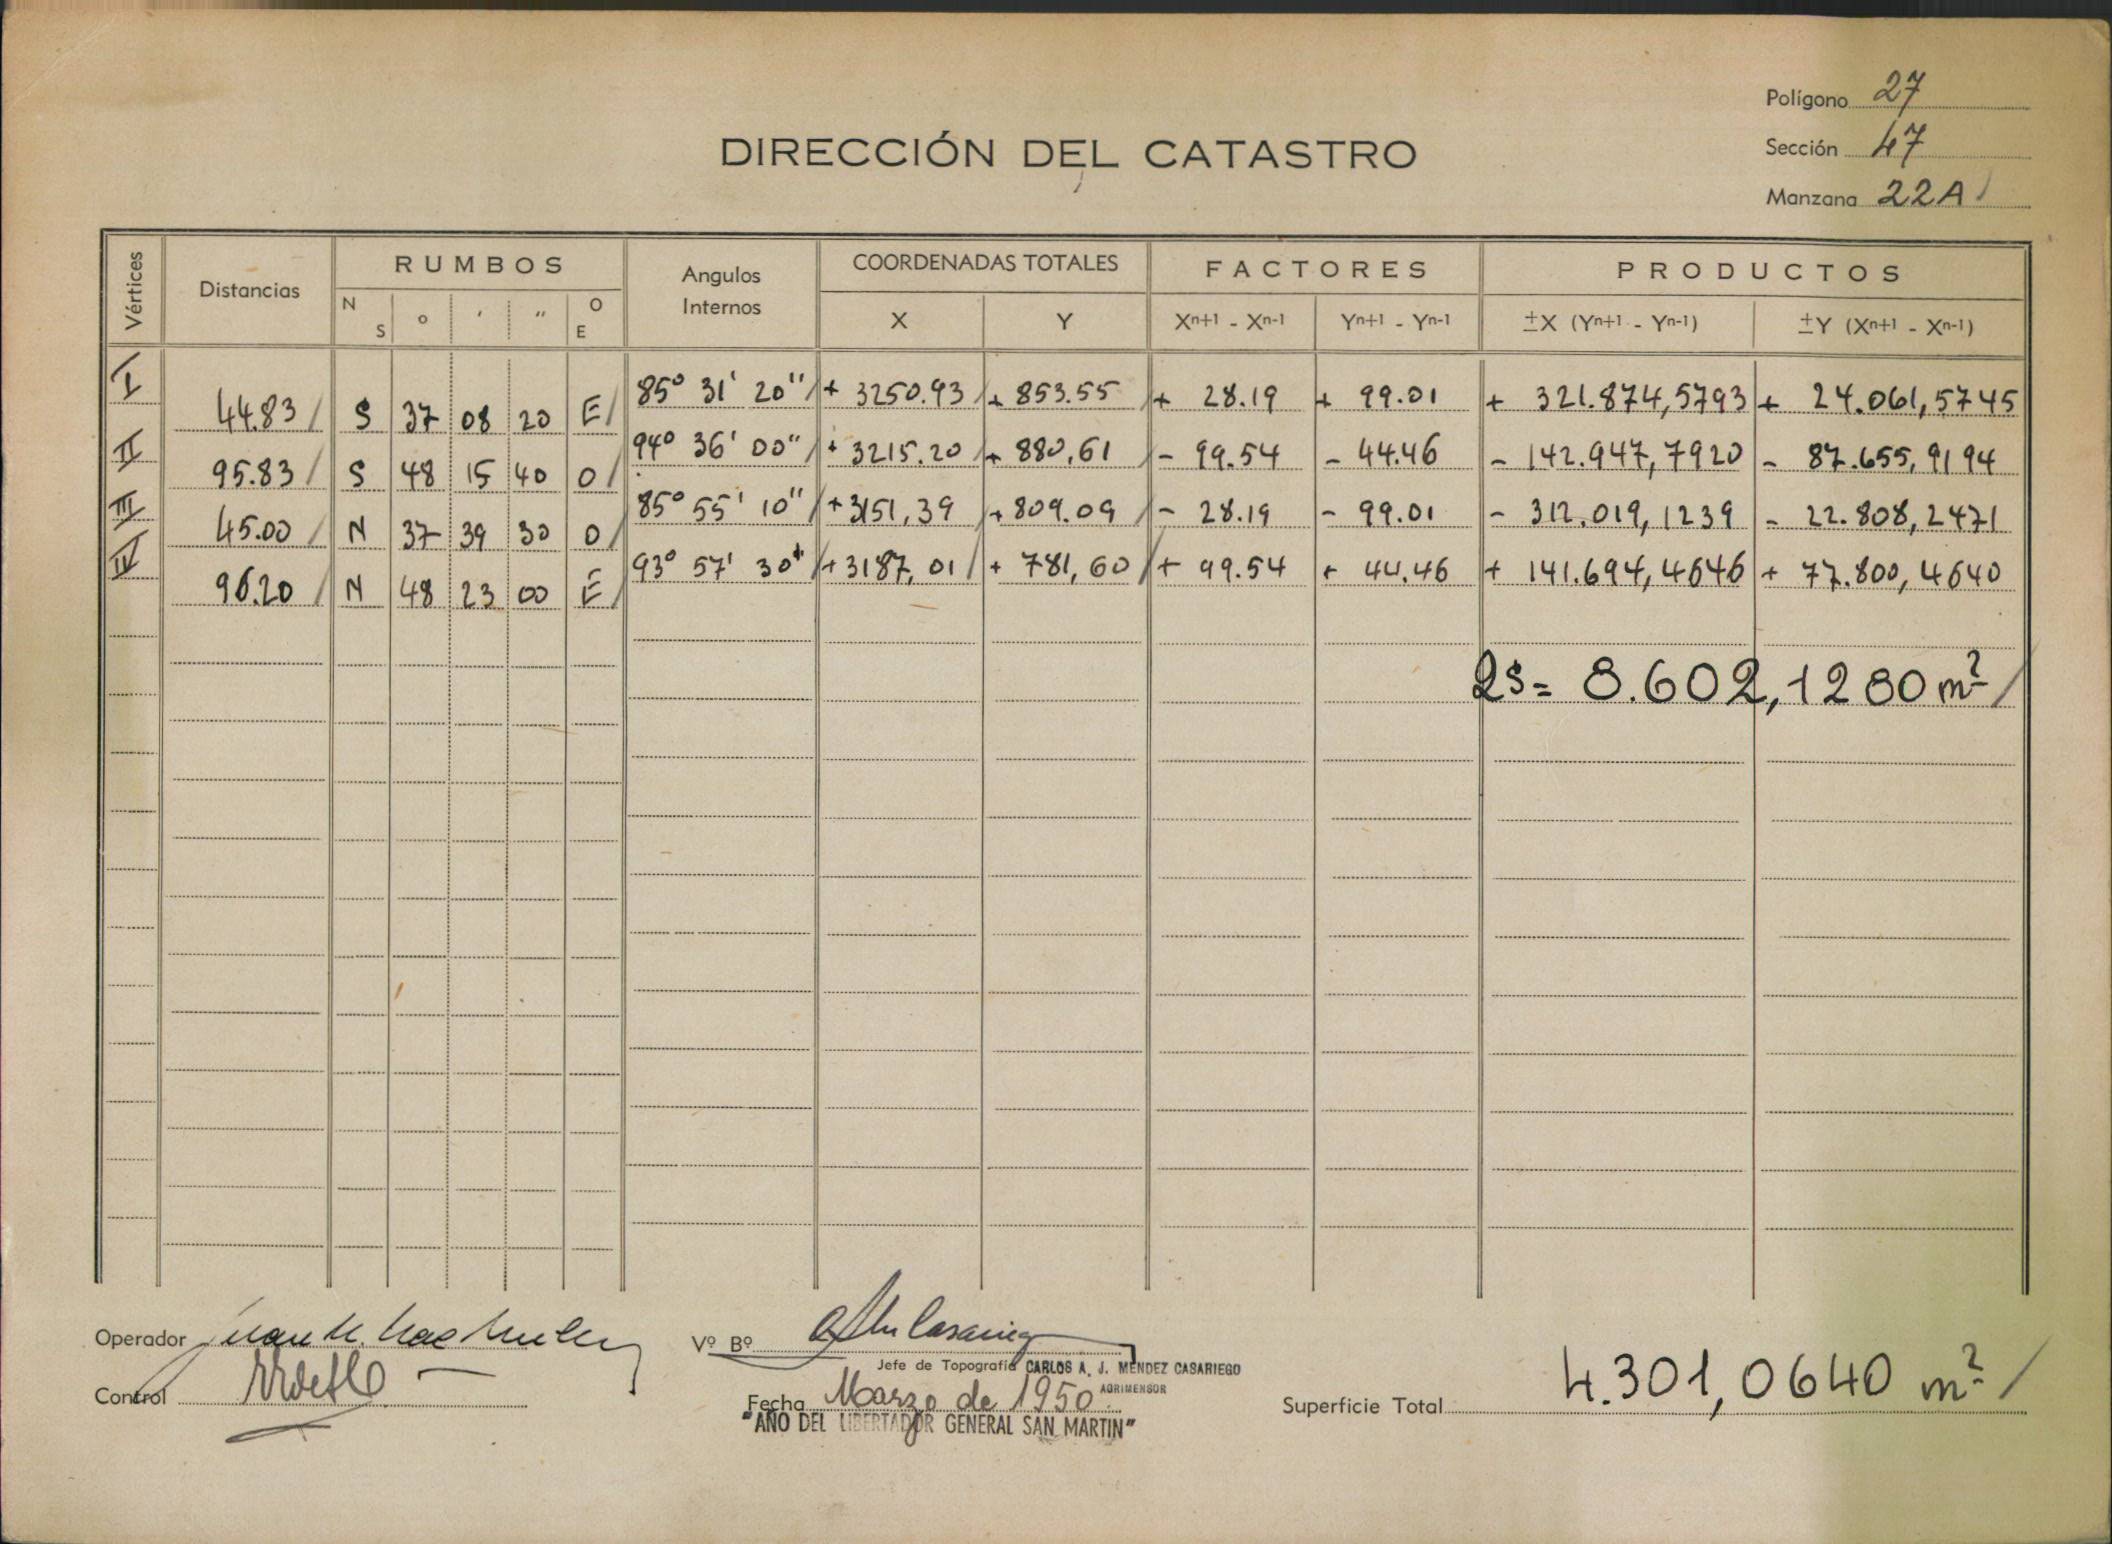 Polígono 27
DIRECCIÓN DEL CATASTRO
Sección 47
Manzana 22A
Vértices Distancias RUMBOS Angulos Internos COORDENADAS TOTALES FACTORES PRODUCTOS
N S o ' " O E X Y Xn+1 - Xn-1 Yn+1 - Yn-1 ±X (Yn+1 - Yn-1) ±Y (Xn+1 - Xn-1)
I 85° 31' 20" + 3250.93 + 853.55 + 28.19 + 99.01 + 321.874,5793 + 24.061,5745
44.83 S 37 08 20 E
II 94° 36' 00" + 3215.20 + 880,61 - 99.54 - 44.46 - 142.947,7920 - 87.655,9194
95.83 S 48 15 40 O
III 85° 55' 10" + 3151,39 + 809.09 - 28.19 - 99.01 - 312.019,1239 - 22.808,2471
45.00 N 37 39 30 O
IV 93° 57' 30" + 3187,01 + 781,60 + 99.54 + 44.46 + 141.694,4646 + 77.800,4640
96.20 N 48 23 00 E
2s = 8.602,1280 m²
Operador Juan
Vº Bº
Jefe de Topografía CARLOS A. J. MENDEZ CASARIEGO
AGRIMENSOR
Control
Fecha Marzo de 1950
"AÑO DEL LIBERTADOR GENERAL SAN MARTIN"
Superficie Total 4.301,0640 m²